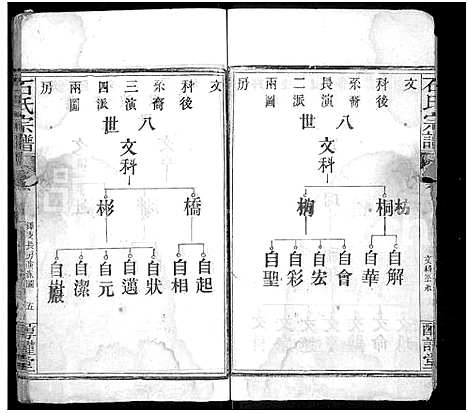 文
科後
系裔
長演
二派
兩圖
房
八世
文科
桐
自解
自華
自會
自宏
自彩
自聖
石氏宗譜
文
科後
系裔
三演
四派
兩圖
房
八世
文科
橋
彬
自起
自相
自狀
自邁
自元
自潔
自巖
石氏宗譜
五